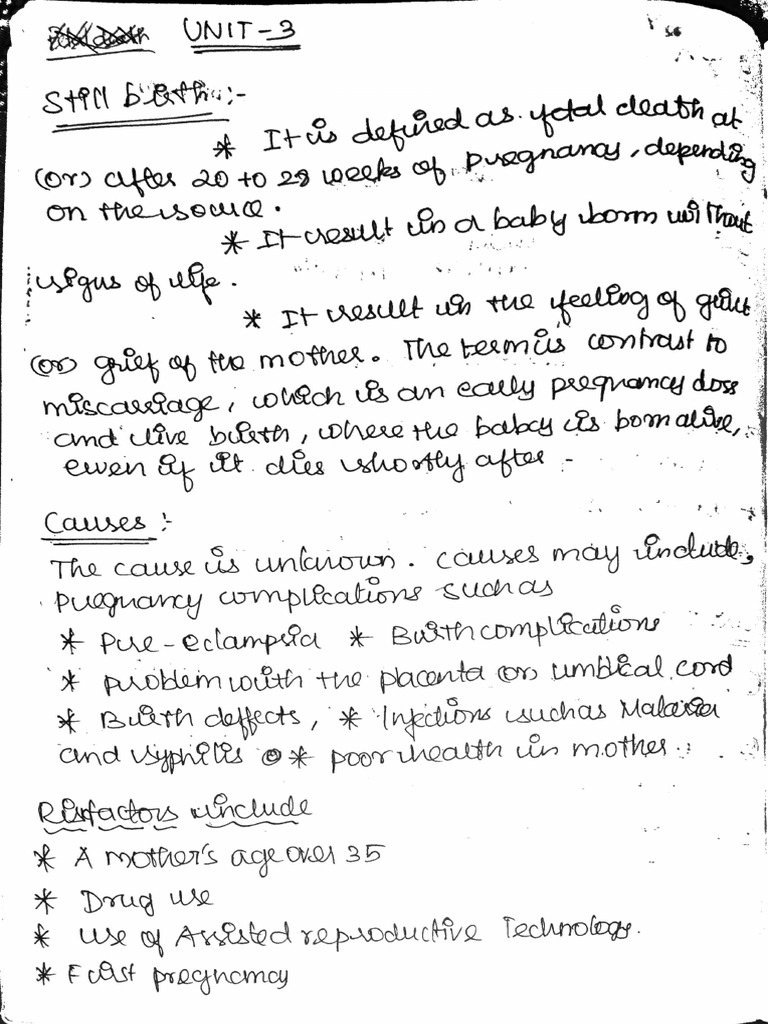 UNIT-3
Still birth:-
* It is defined as fetal death at
(or) after 20 to 28 weeks of pregnancy, depending
on the source.
* It result in a baby born without
signs of life.
* It result in the feeling of guilt
(or) grief of the mother. The term is contrast to
miscarriage, which is an early pregnancy loss
and live birth, where the baby is born alive,
even if it dies shortly after -
Causes :-
The cause is unknown. causes may include,
pregnancy complications such as
* Pre-eclampsia * Birth complications
* problem with the placenta (or) umbical cord
* Birth deffects, * Infections such as Malaria
and syphilis * poor health in mother.
Risfactors include
* A mother's age over 35
* Drug use
* Use of Assisted reproductive Technology.
* First pregnancy